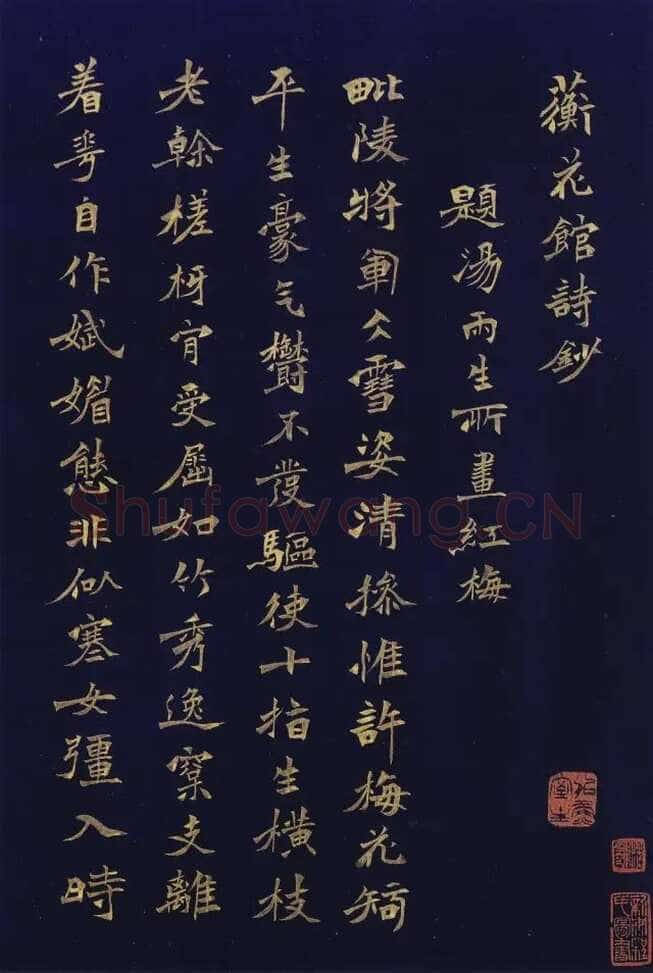 蘅花館詩鈔
題湯雨生所畫紅梅
毗陵將軍冬雪姿清摻惟許梅花知
平生豪气鬱不發驅使十指生橫枝
老榦槎枒肯受屈如竹秀逸窠支離
着花自作娬媚態非似寒女彊入時
Shufawang.CN